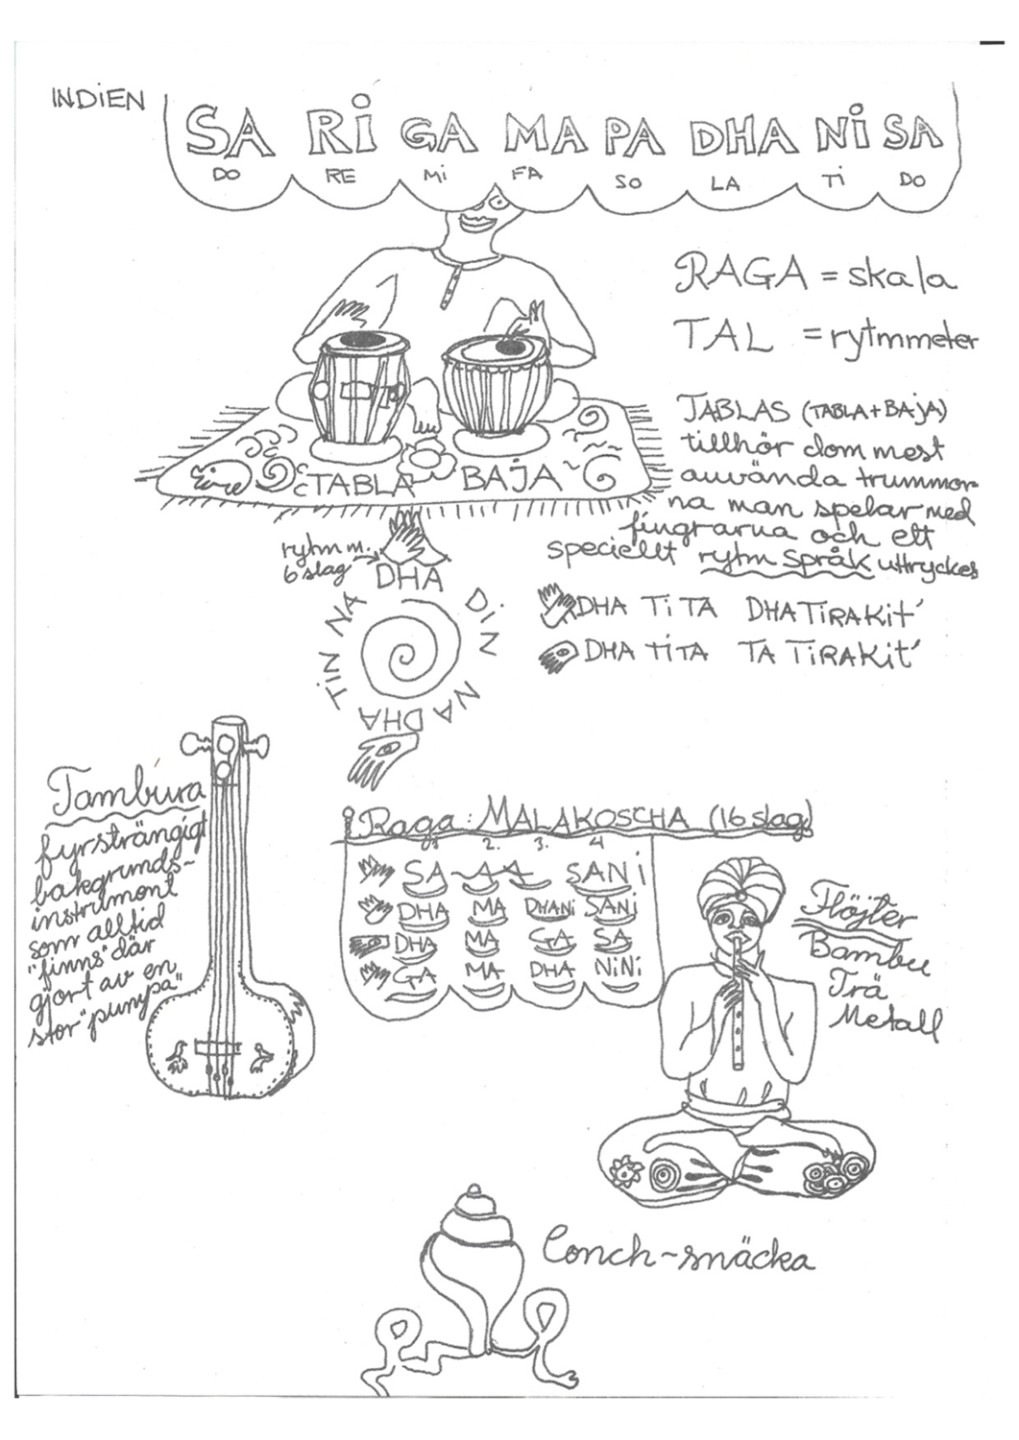 INDIEN
SA RI GA MA PA DHA NI SA
DO RE Mi FA SO LA Ti DO
RAGA = skala
TAL = rytmmeter
TABLAS (TABLA + BAJA)
tillhör dom mest
använda trummor
na man spelar med
fingrarna och ett
speciellt rytm språk uttryckes
TABLA BAJA
rytm m.
6 slag
DHA
DIN
NA
DHA
TIN
NA
DHA Ti TA DHATiRAKit'
DHA TiTA TA TiRAKit'
Tambura
fyrsträngigt
bakgrunds-
instrument
som alltid
"finns" där
gjort av en
stor "pumpa"
Raga: MALAKOSCHA (16 slag)
2. 3. 4
SA-A-A SANi
DHA MA DHANi SANi
DHA MA GA SA
GA MA DHA NiNi
Flöjter
Bambu
Trä
Metall
Conch-snäcka